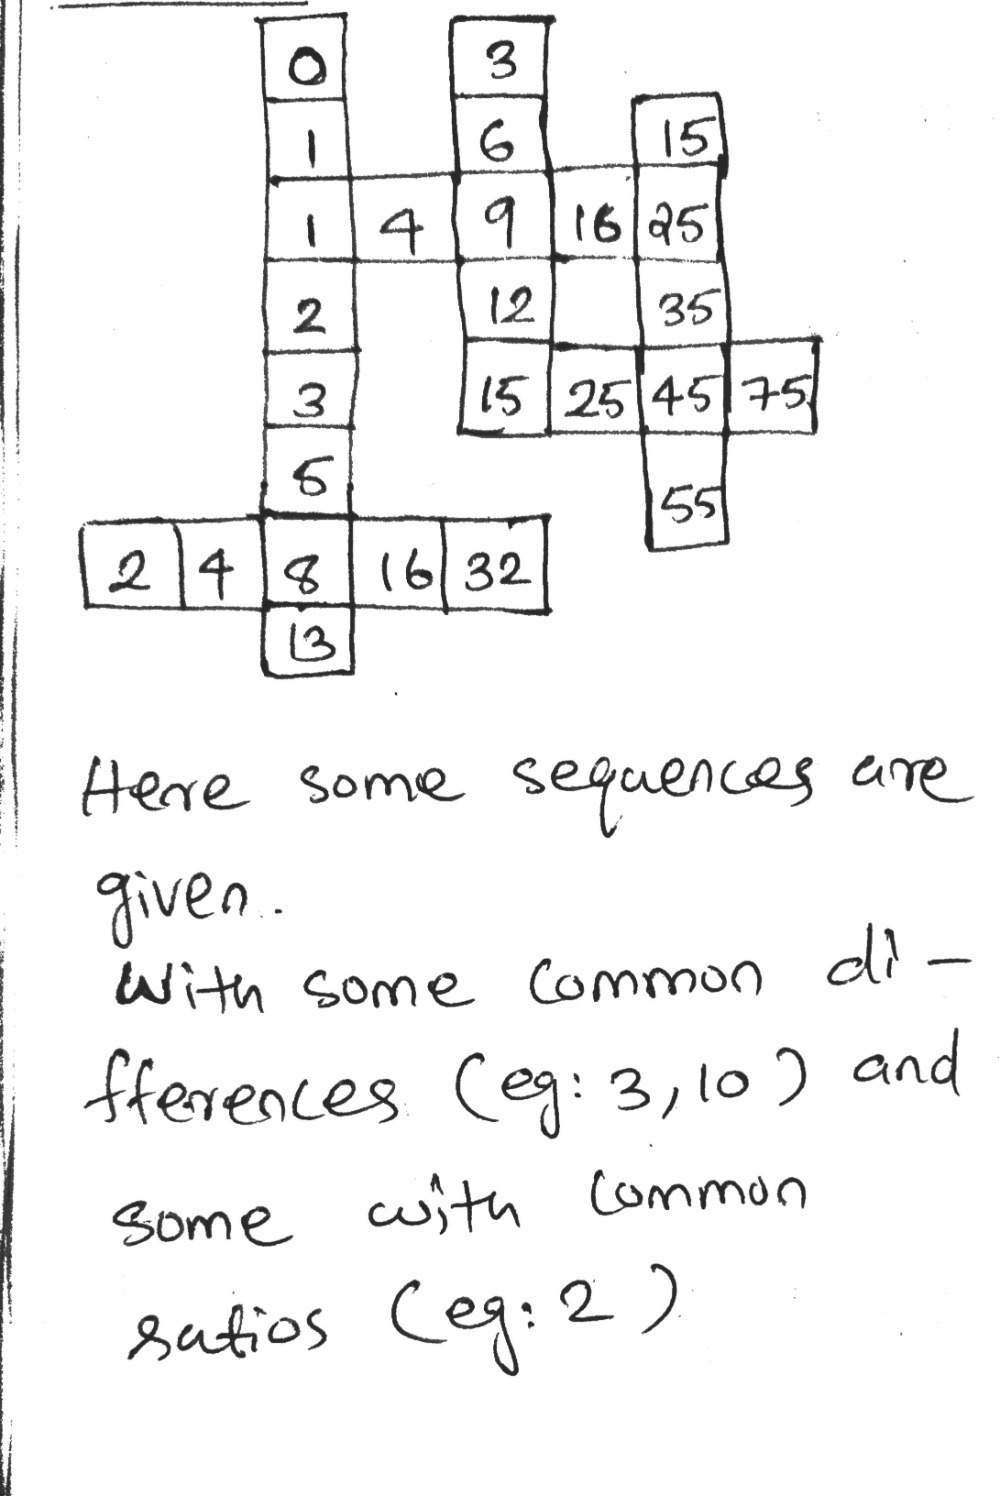 0 3
1 6 15
1 4 9 16 25
2 12 35
3 15 25 45 75
5 55
2 4 8 16 32
13
Here some sequences are
given.
With some common di-
fferences (eg: 3,10) and
some with common
ratios (eg: 2)